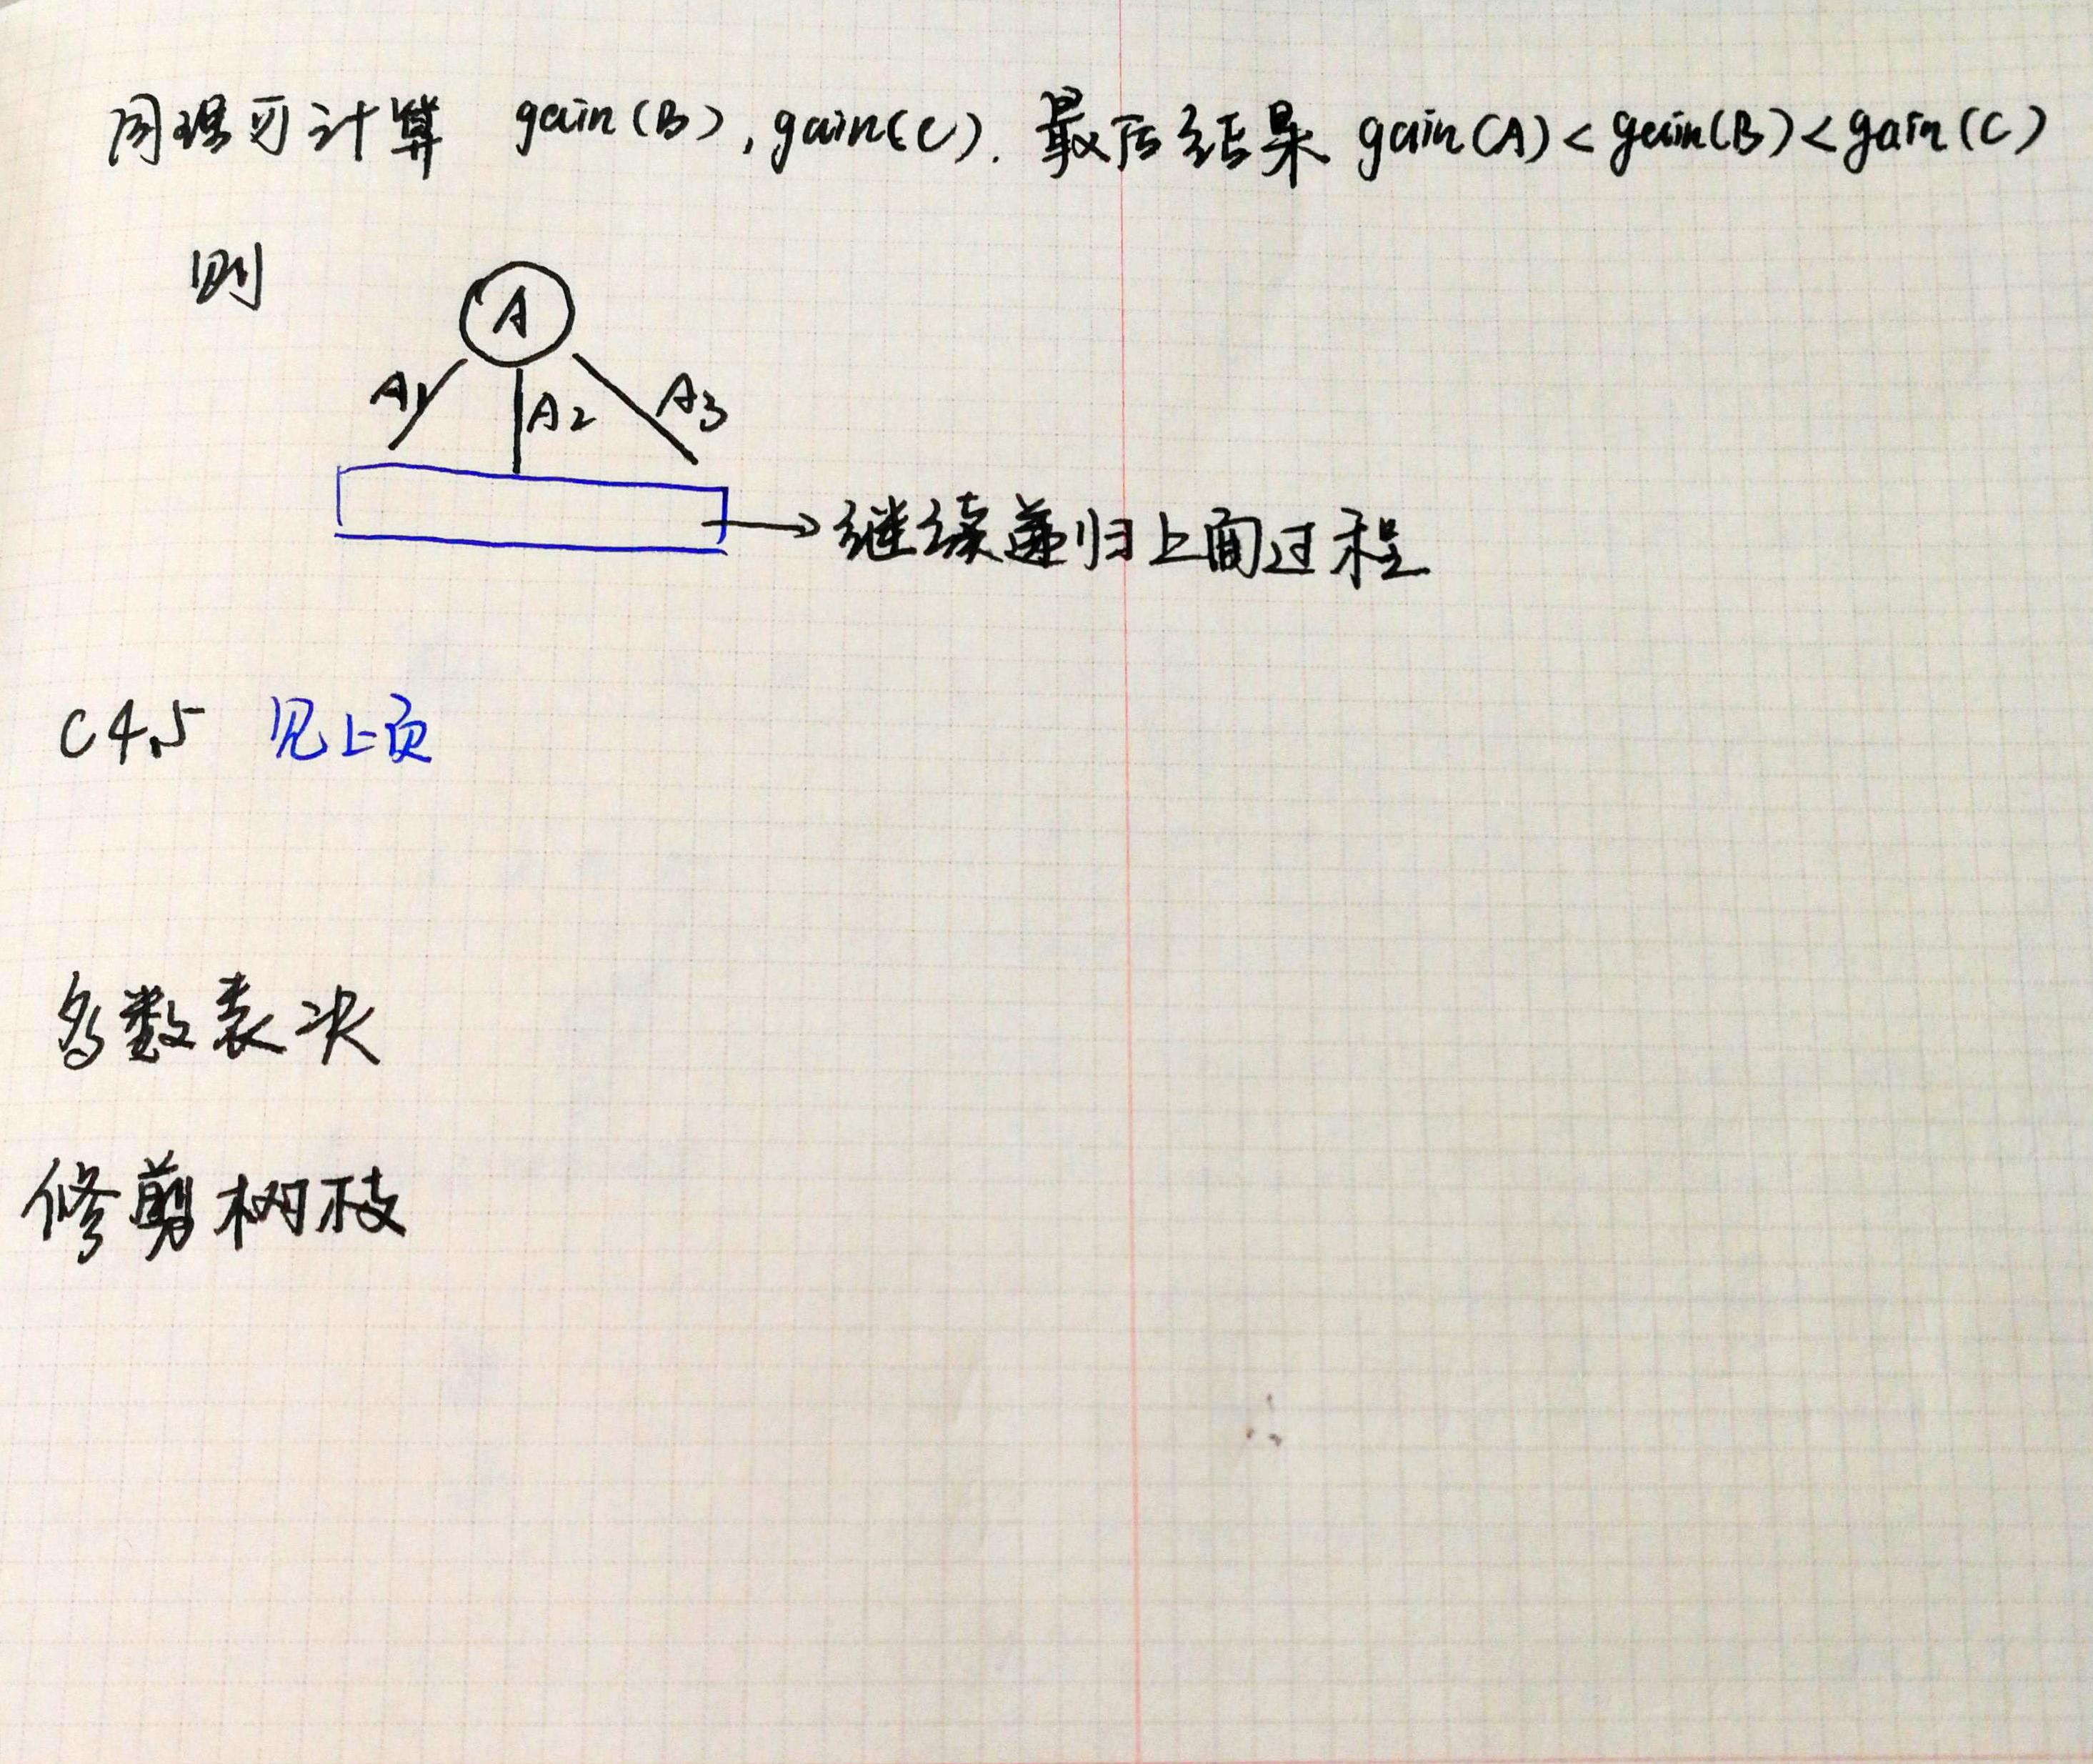 同理可计算 gain(B),gain(C). 最后结果 gain(A)<gain(B)<gain(C)
则
A
A1 A2 A3
继续递归上面过程
C4.5 见上页
多数表决
修剪树枝